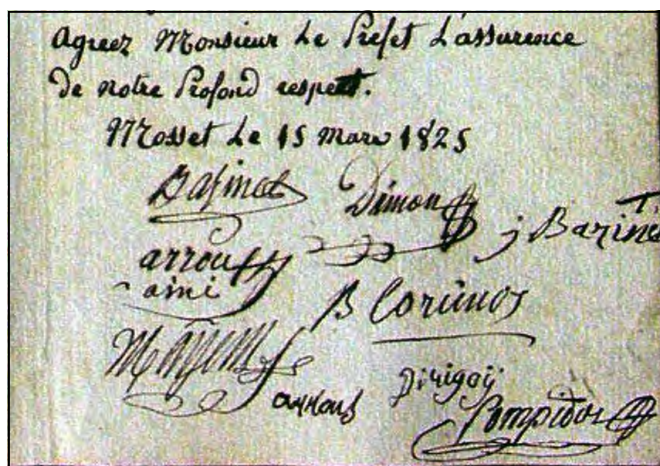 agreez Monsieur Le Prefet L'assurence
de notre Profond respect.
Mosset Le 15 mars 1825
Dimon
j Barine
arrous
aine
B Corunos
arrous
Pompidor